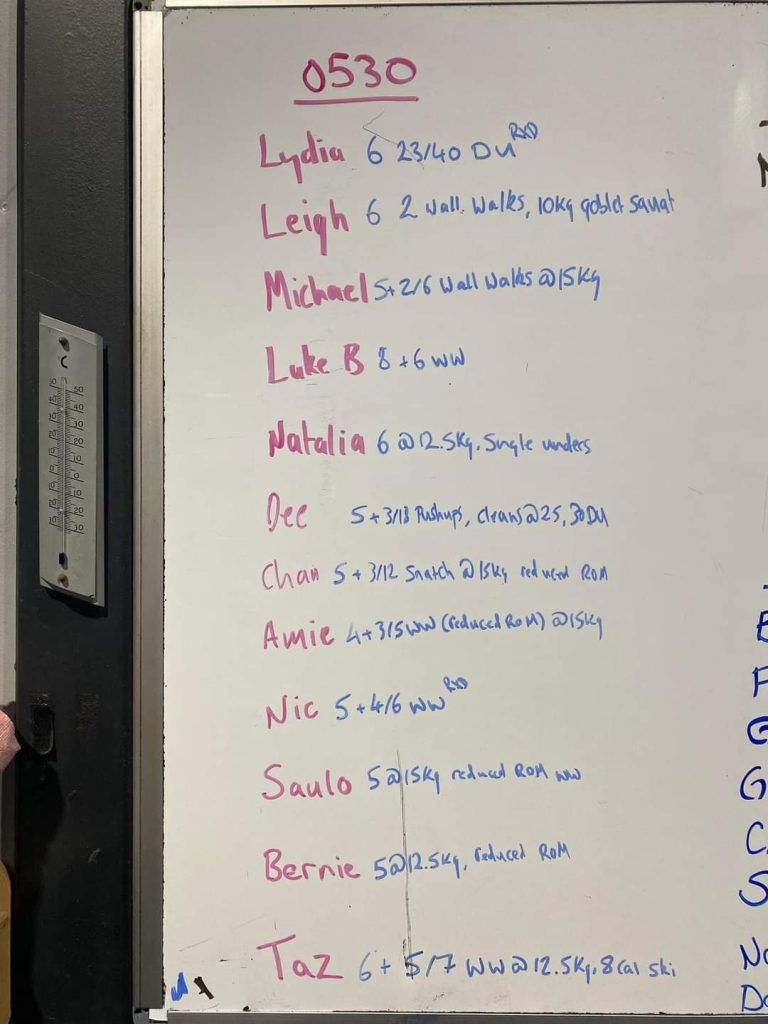 0530
Lydia 6 23/40 DU RXD
Leigh 6 2 Wall Walks, 10kg goblet squat
Michael 5+2/6 Wall Walks @15kg
Luke B 8+6 WW
Natalia 6 @12.5kg, Single unders
Dee 5+3/18 Pushups, cleans@25, 30DU
Chan 5+3/12 Snatch @15kg reduced ROM
Amie 4+3/5WW (reduced ROM) @15kg
Nic 5+4/6 WW RXD
Saulo 5@15kg reduced ROM WW
Bernie 5@12.5kg, reduced ROM
Taz 6+5/7 WW@12.5kg, 8 Cal Ski